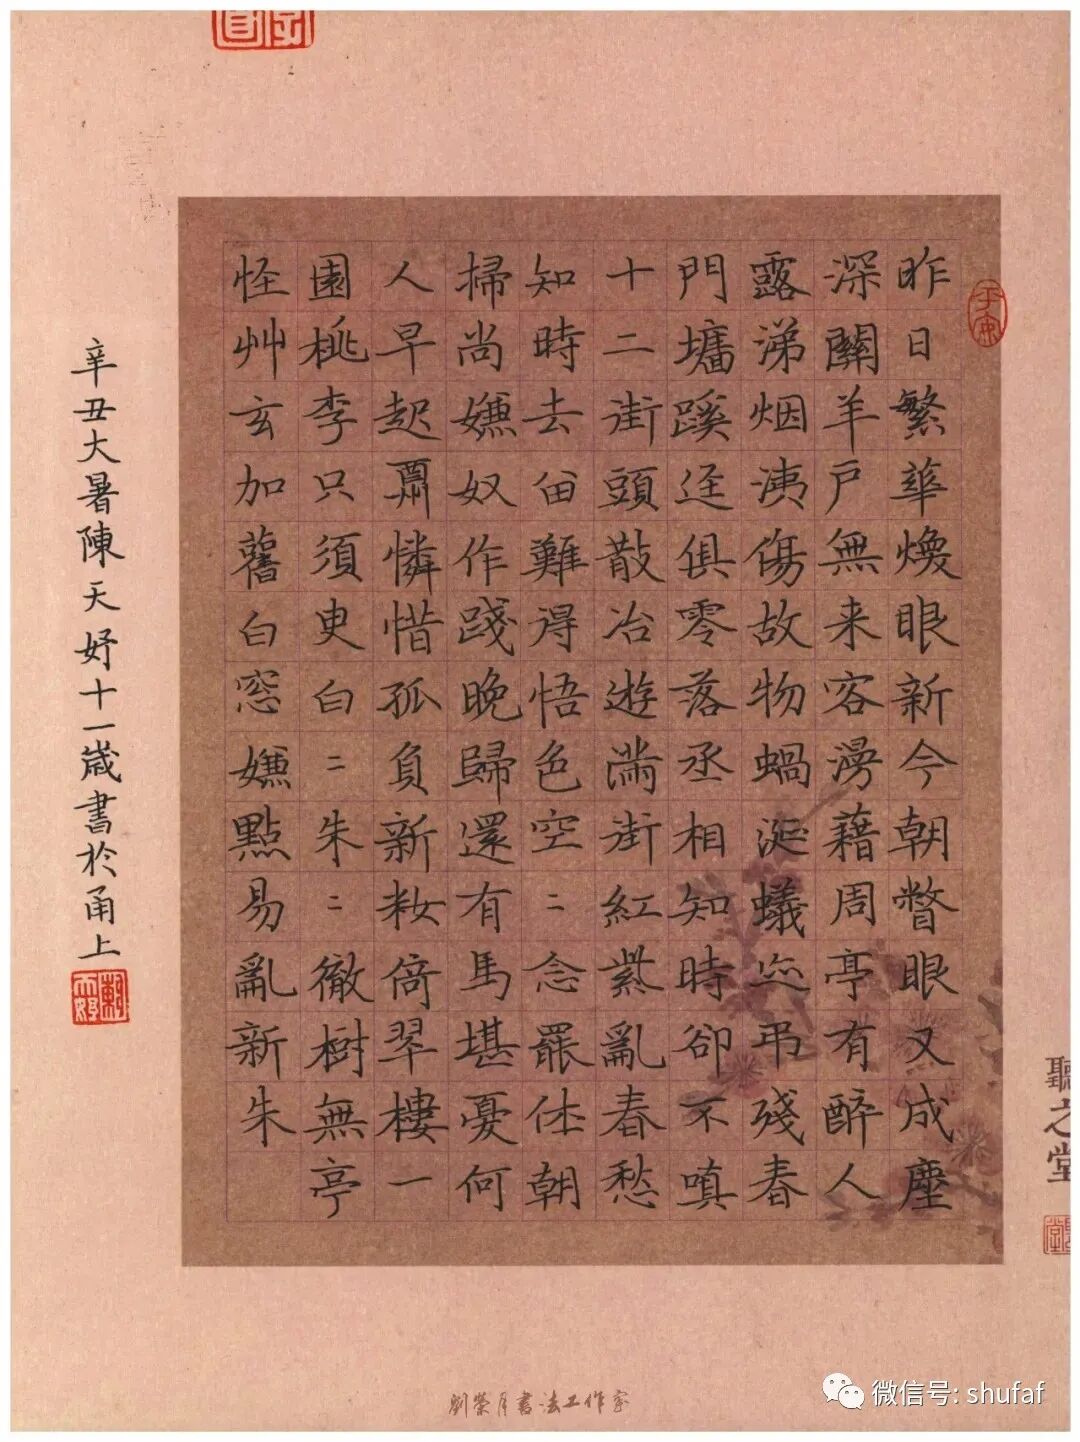 昨日繁華煥眼新今朝瞥眼又成塵
深關羊戶無来客漫藉周亭有醉人
露涕烟洟傷故物蝸涎蟻迹弔殘春
門墻蹊逕俱零落丞相知時卻不嗔
十二街頭散冶遊滿街紅紫亂春愁
知時去留難得悟色空二念罷休朝
掃尚嫌奴作踐晚歸還有馬堪憂何
人早起肅憐惜孤負新妝倚翠樓一
園桃李只須臾白二朱二徹樹無亭
怪艸玄加舊白窓嫌點易亂新朱
辛丑大暑陳天妤十一歲書於甬上
聽之堂
劉榮月書法工作室
微信号: shufaf